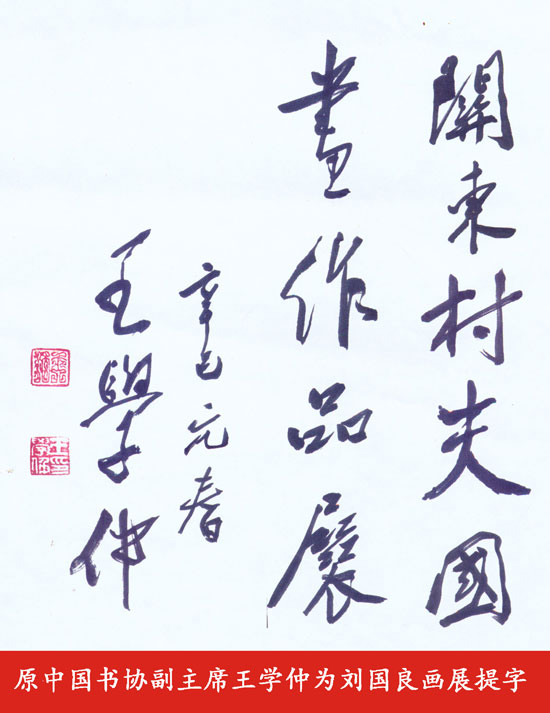 關東村夫國
畫作品展
辛巳元春
王學仲
王印
學仲
原中国书协副主席王学仲为刘国良画展提字